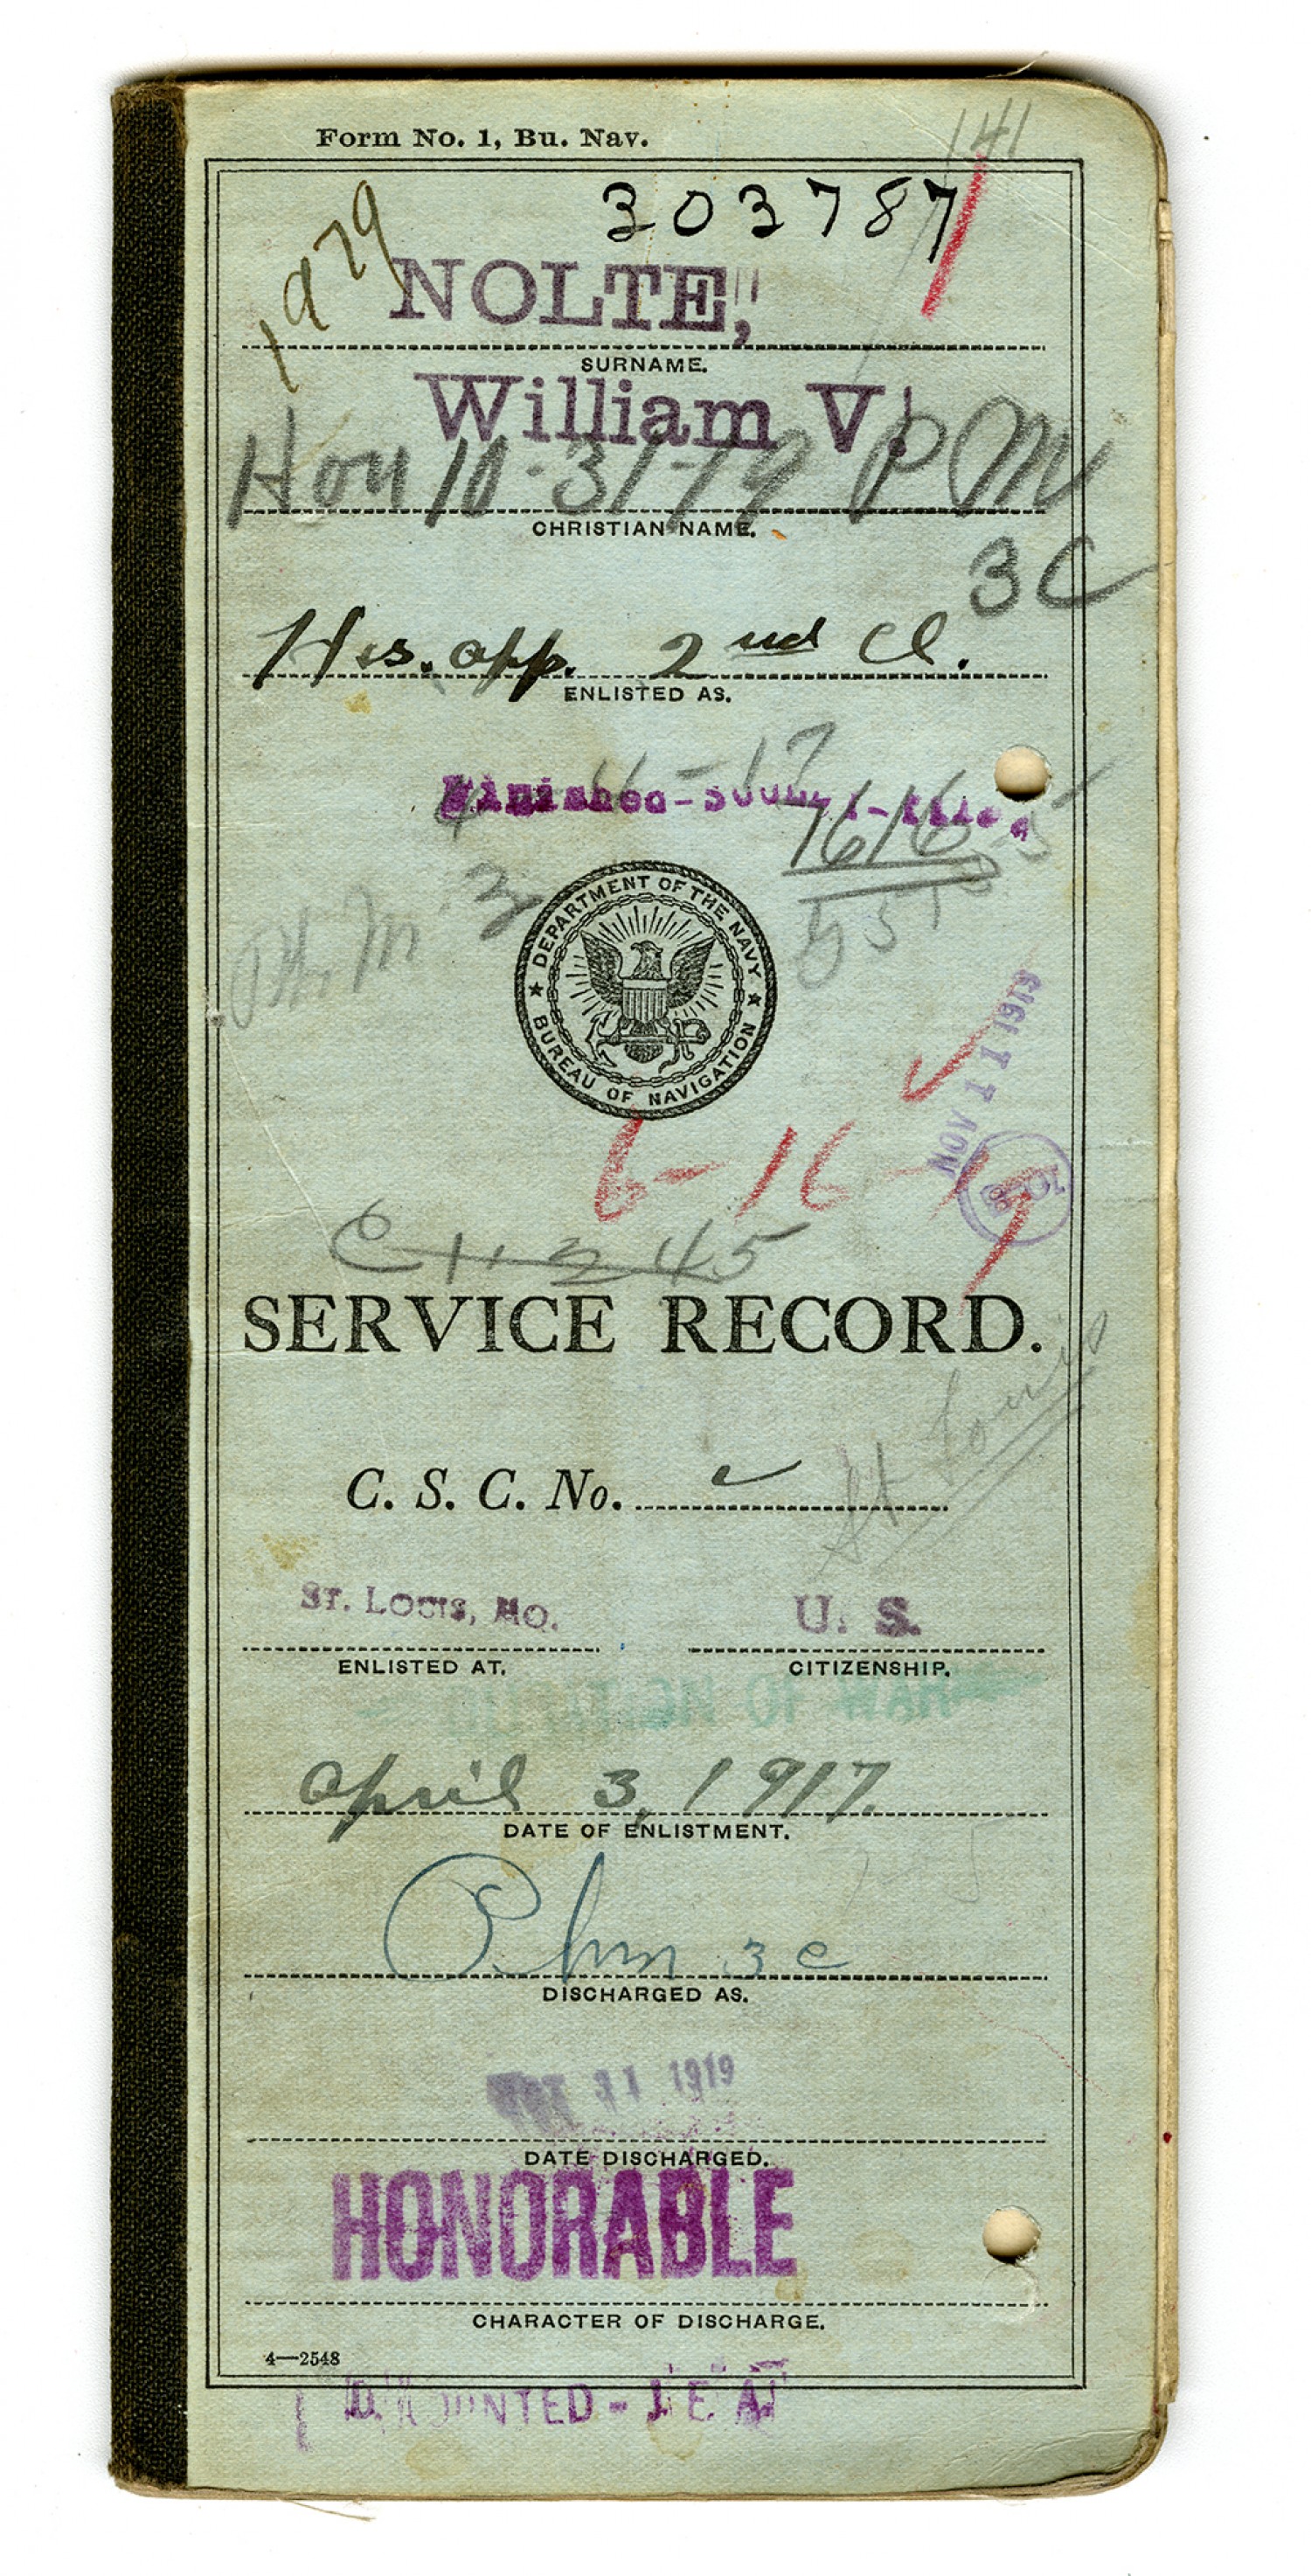 Form No. 1, Bu. Nav.
141
303787
1979
NOLTE,
SURNAME.
William V.
Hon 10-31-19 P M
CHRISTIAN NAME.
3C
Hos. app. 2nd Cl.
ENLISTED AS.
16-17
7616
3
DEPARTMENT OF THE NAVY
BUREAU OF NAVIGATION
NOV 11 1919
6-16-17
45
SERVICE RECORD.
St Louis
C. S. C. No.
ST. LOUIS, MO.
U. S.
ENLISTED AT.
CITIZENSHIP.
OF WAR
April 3, 1917.
DATE OF ENLISTMENT.
P.hm 3c
DISCHARGED AS.
OCT 31 1919
DATE DISCHARGED.
HONORABLE
CHARACTER OF DISCHARGE.
4—2548